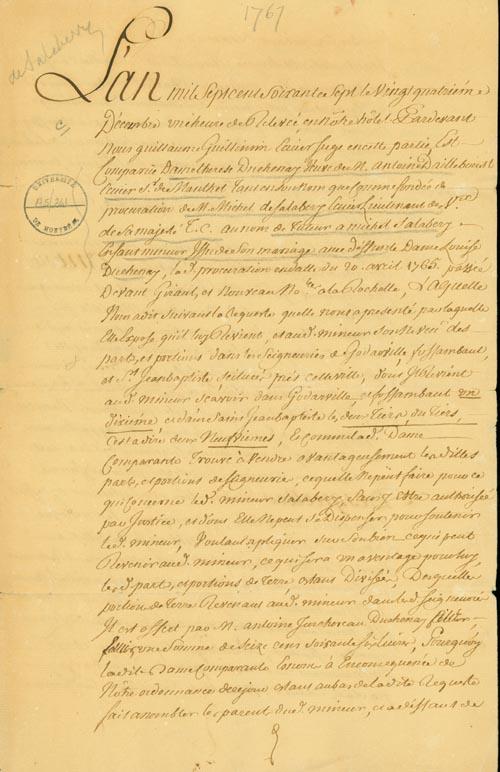 1767
de Salaberry
L'an mil Sept cent Soixante Sept le Vingt quatrieme
Decembre une heure de Relevé en nôtre hôtel Pardevant
Nous guillaume Guillimin Ecuier Juge en cette partie Est
Comparüe Dame therese Duchenay Veuve de M. Antoine Dailleboust
Ecuier Sr. de Manthet tant en Son Nom que comme fondée de
procuration de M. Michel de Salabery Ecuier Lieutenant de
de Sa majesté &.C. au nom de tuteur a michel Salabery
Enfant mineur Issu de Son mariage avec deffunte Dame Louise
Duchenay, lad. procuration en datte du 20. avril 1765. passée
Devant Girant, et Nouveau No.re a la Rochelle, Laquelle
Nous a dit Suivant la Requete quelle nous a presenté par laquelle
Elle Expose qu'il luy Revient, et aud. mineur Son Neveu des
parts, et portions dans les Seigneuries de Godarville, fossambault,
et St. Jean baptiste Scituées près cette ville, dont Il Revient
aud. mineur Scavoir dans Godarville, et fossambault un
dixieme et dans Saint Jean baptiste le deux tiers, du tiers,
c'est a dire deux Neufviemes, Et comme lad. Dame
Comparante trouve à Vendre avantageusement lesdittes
parts, et portions de Seigneurie, ce quelle Ne peut faire pour ce
qui Concerne led. mineur Salabery, Sans Estre authorisée
par Justice, et dont Elle Ne peut Se Dispenser pour Soutenir
led. mineur, Voulant apliquer Sur Son bien ce qui peut
Revenir aud. mineur, ce qui Sera un avantage pour luy
les d. part, et portions de terre Estant Divisée, Desquelle
portion de terre Revenant aud. mineur dans les d. Seigneurie
Il est offert par M. antoine Juchereau Duchenay
une Somme de Seize cens Soixante Six Livres, Pourquoy
la dite Dame Comparante Enconsequence de
Nôtre ordonnance de ce jour Estant au bas de la dite Requeste
fait assembler les parent dud. mineur, et a deffaut de
UNIVERSITÉ
DE MONTRÉAL